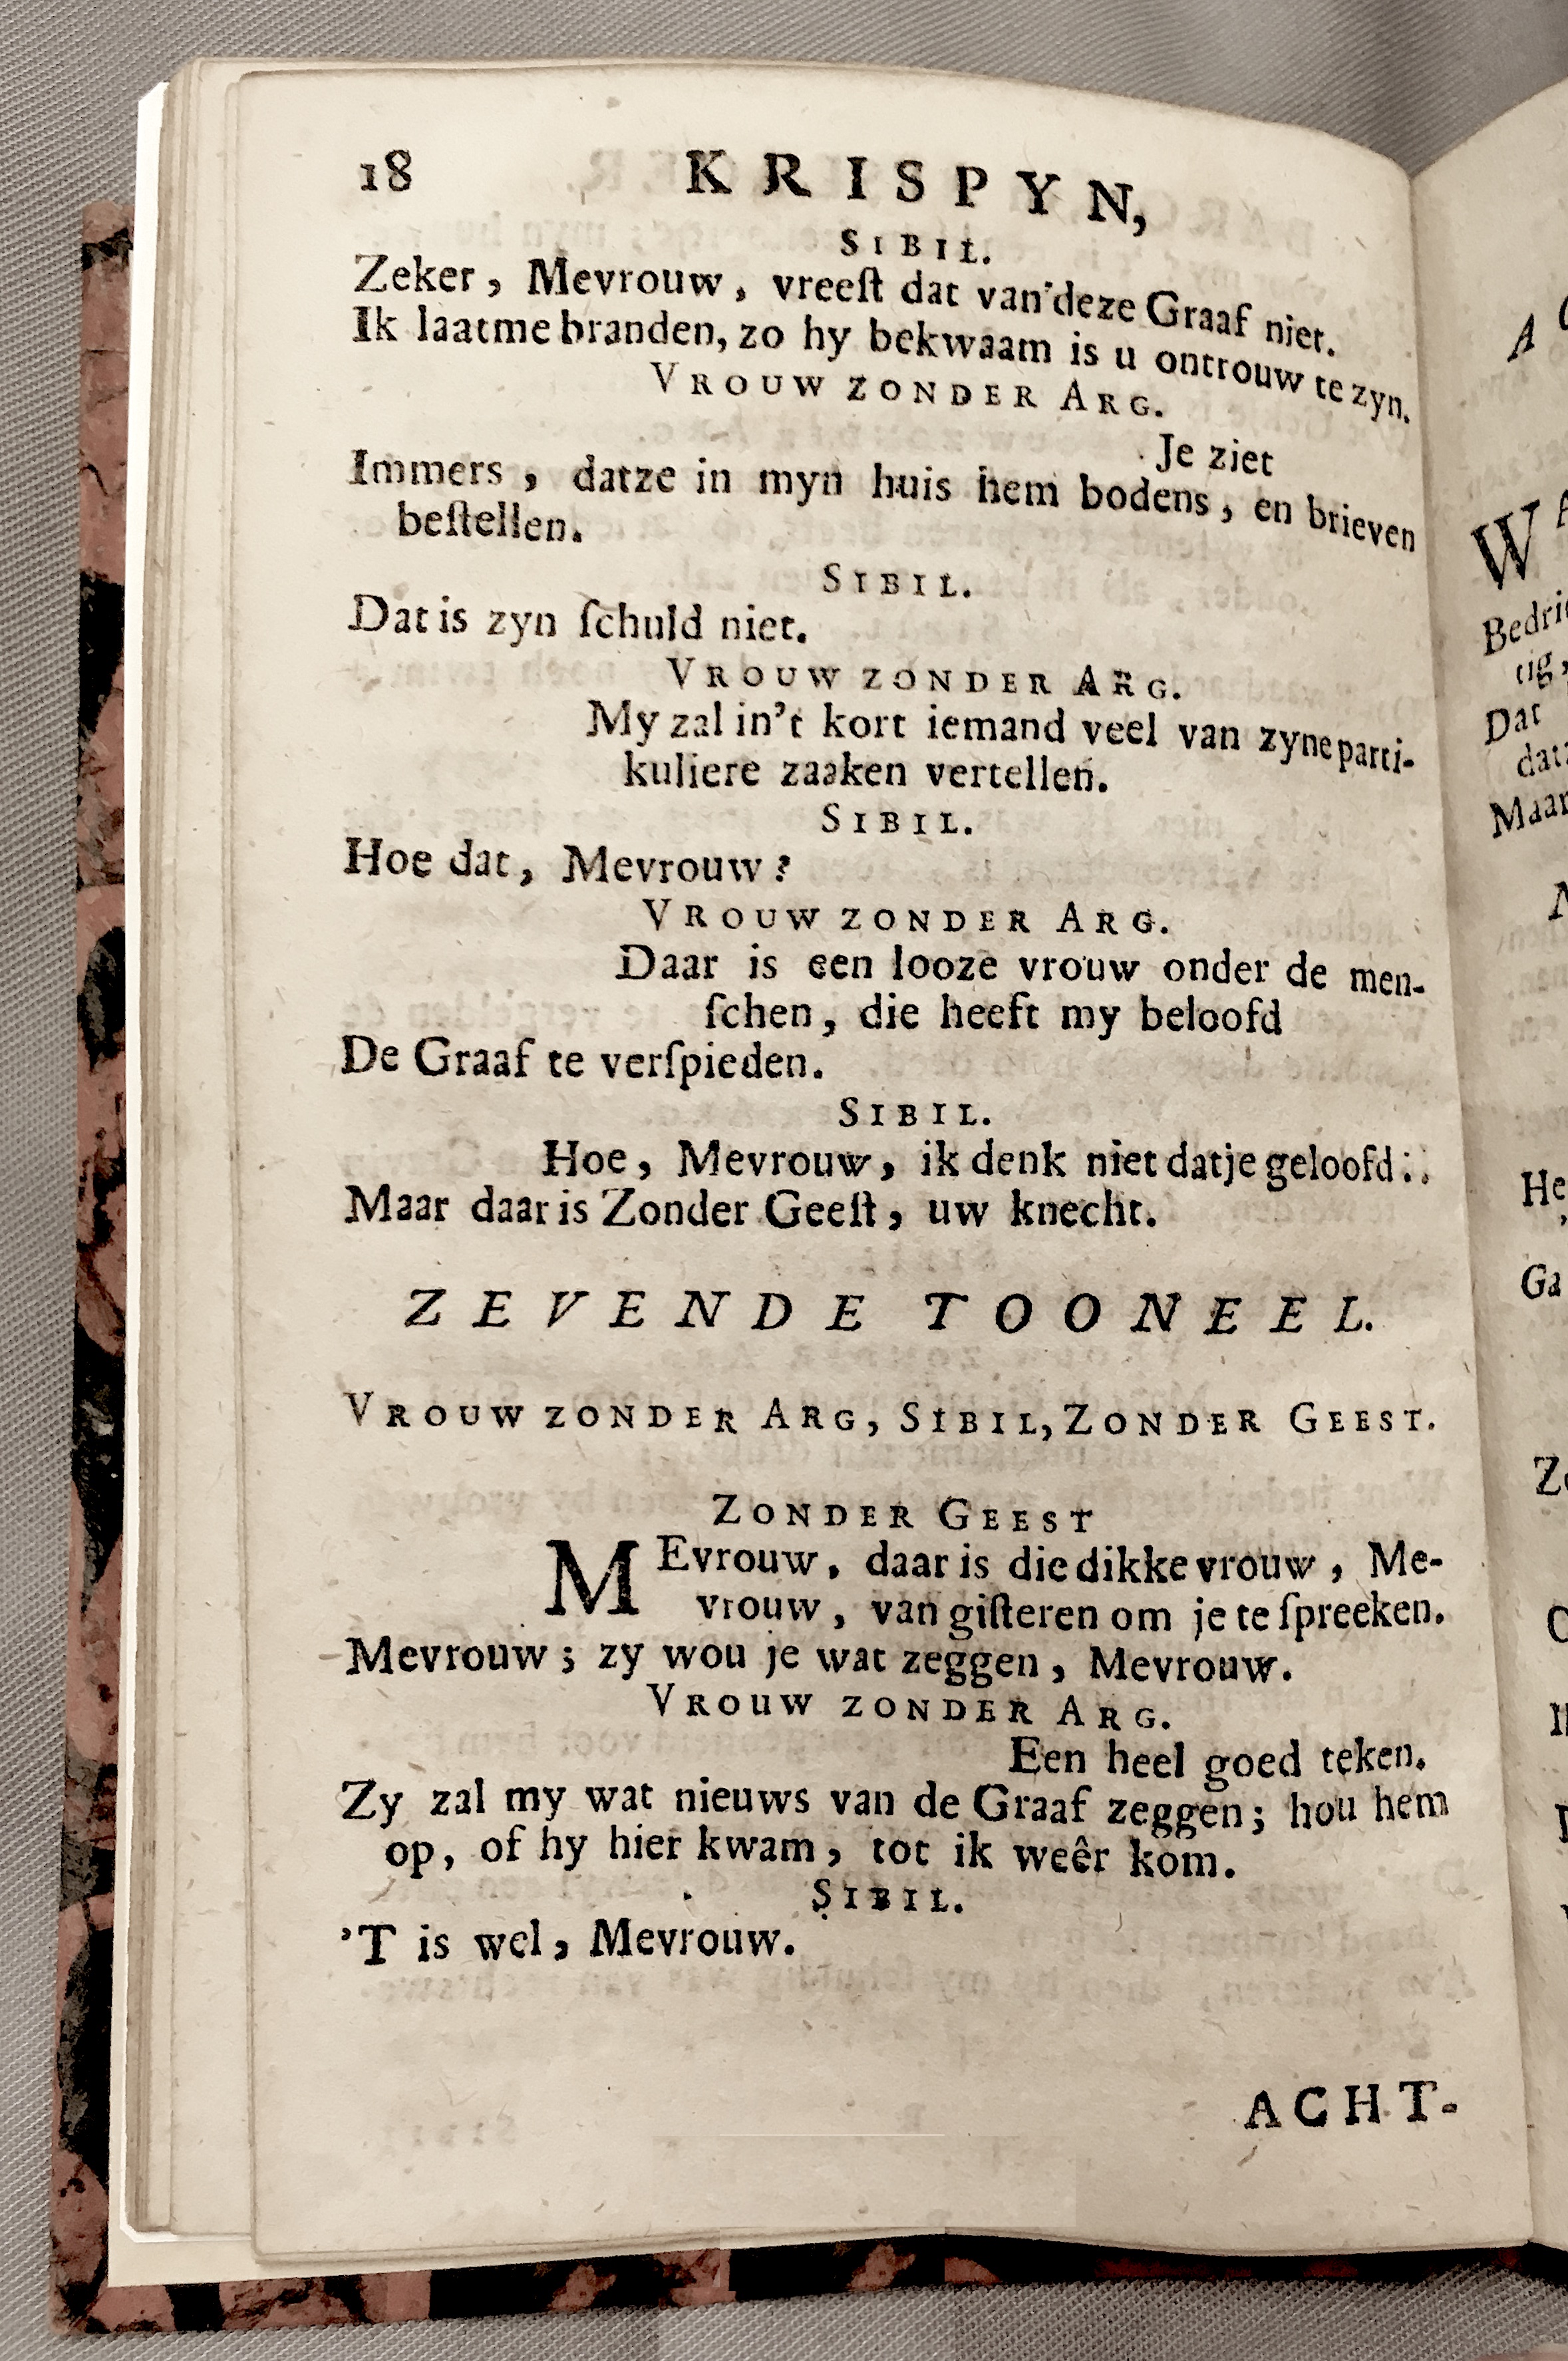 18 KRISPYN,
SIBIL.
Zeker, Mevrouw, vreeſt dat van deze Graaf niet.
Ik laatme branden, zo hy bekwaam is u ontrouw te zyn.
VROUW ZONDER ARG.
Je ziet
Immers, datze in myn huis hem bodens, en brieven
beſtellen.
SIBIL.
Dat is zyn ſchuld niet.
VROUW ZONDER ARG.
My zal in't kort iemand veel van zyne parti-
kuliere zaaken vertellen.
SIBIL.
Hoe dat, Mevrouw?
VROUW ZONDER ARG.
Daar is een looze vrouw onder de men-
ſchen, die heeft my beloofd
De Graaf te verſpieden.
SIBIL.
Hoe, Mevrouw, ik denk niet datje geloofd:.
Maar daar is Zonder Geeſt, uw knecht.
ZEVENDE TOONEEL.
VROUW ZONDER ARG, SIBIL, ZONDER GEEST.
ZONDER GEEST
MEvrouw, daar is die dikke vrouw, Me-
vrouw, van giſteren om je te ſpreeken.
Mevrouw; zy wou je wat zeggen, Mevrouw.
VROUW ZONDER ARG.
Een heel goed teken.
Zy zal my wat nieuws van de Graaf zeggen; hou hem
op, of hy hier kwam, tot ik weêr kom.
SIBIL.
'T is wel, Mevrouw.
ACHT-
W
Bedri
tig,
Dat
Maar
He
Ga